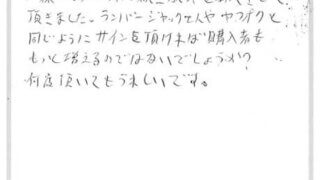 頂きました。ランバージャックさんやヤフオクと
同じようにサインを頂ければ購入者も
もっと増えるのではないでしょうか?
何度頂いてもうれしいです。